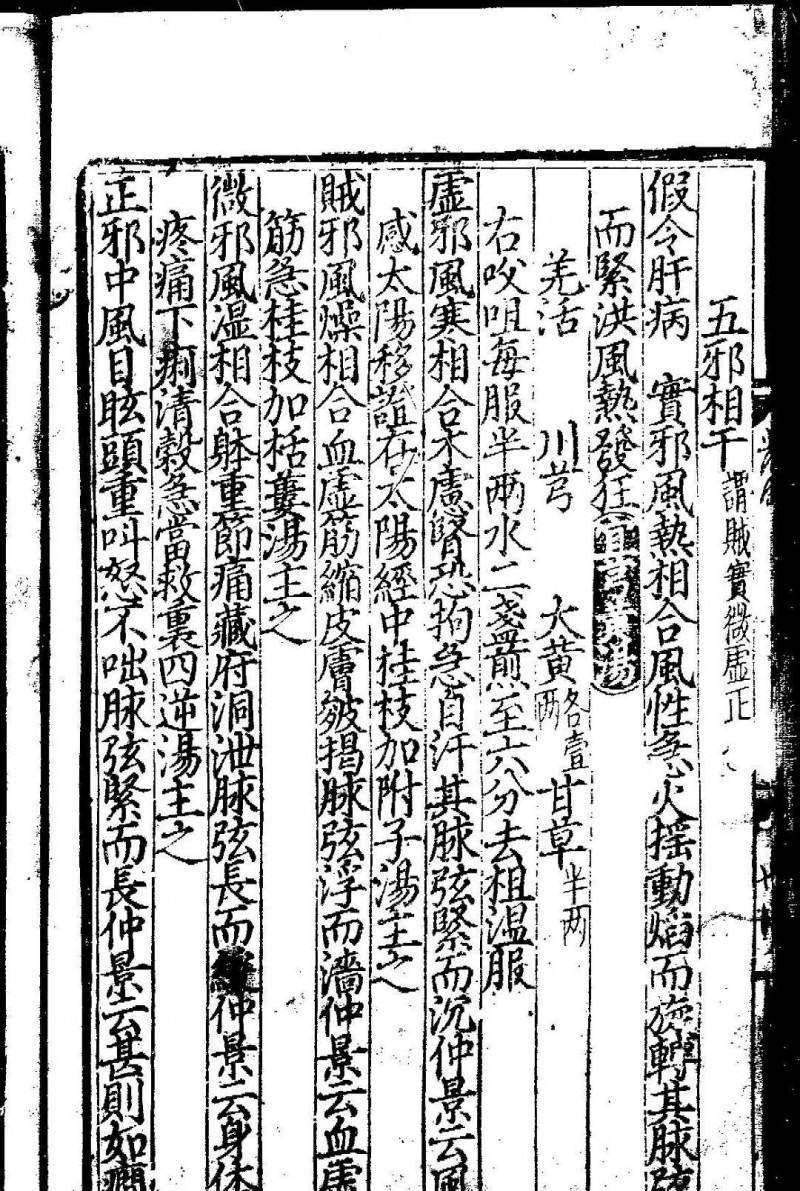 五邪相干 謂賊實微虛正
假令肝病 實邪風熱相合風性急火搖動焰而旋轉其脉弦
而緊洪風熱發狂 湯
羌活 川芎 大黃各壹兩 甘草半两
右㕮咀每服半兩水二盞煎至六分去柤溫服
虛邪風寒相合木慮腎恐拘急自汗其脉弦緊而沉仲景云風
感太陽移證在太陽經中桂枝加附子湯主之
賊邪風燥相合血虛筋縮皮膚皴揭脉弦浮而濇仲景云血虛
筋急桂枝加栝蔞湯主之
微邪風湿相合躰重節痛藏府洞泄脉弦長而緩仲景云身体
疼痛下痢清穀急當救裏四逆湯主之
正邪中風目眩頭重叫怒不出脉弦緊而長仲景云甚則如癇